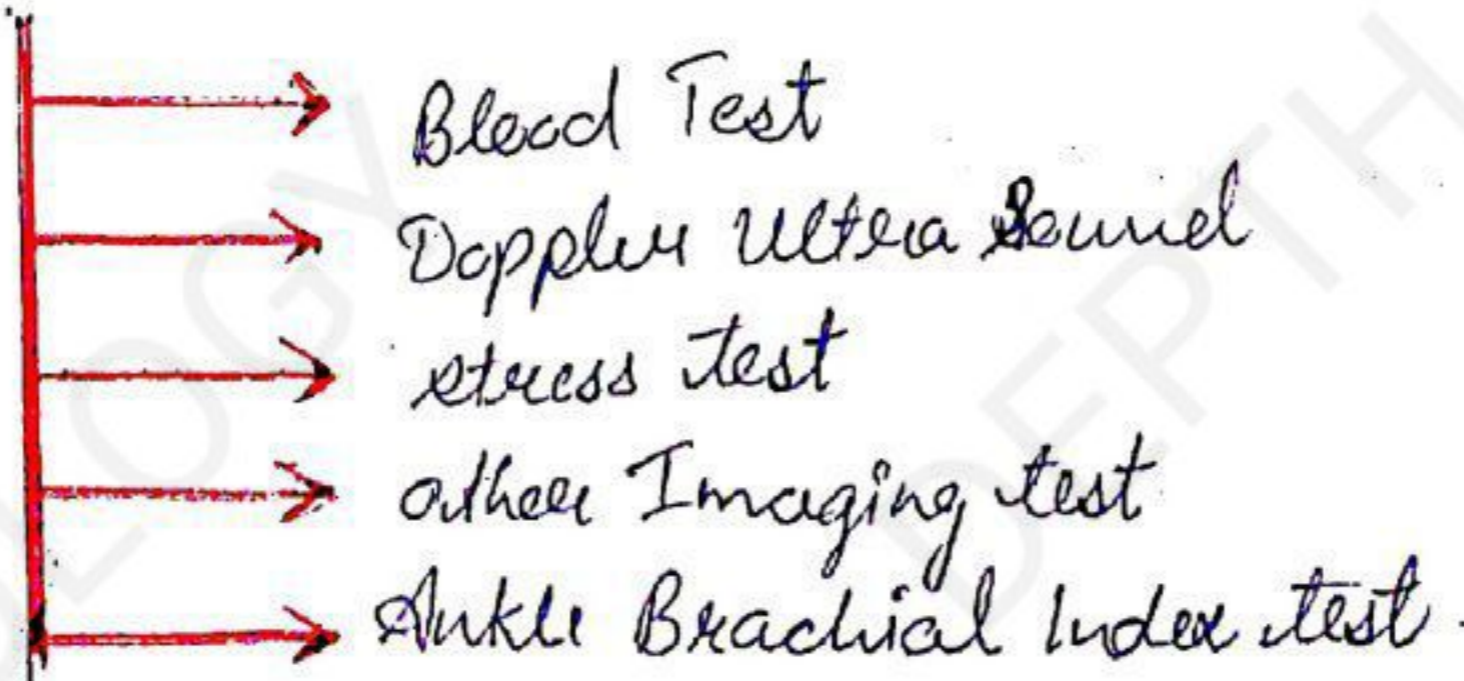 Blood Test
Doppler Ultra Sound
stress test
other Imaging test
Ankle Brachial Index test.